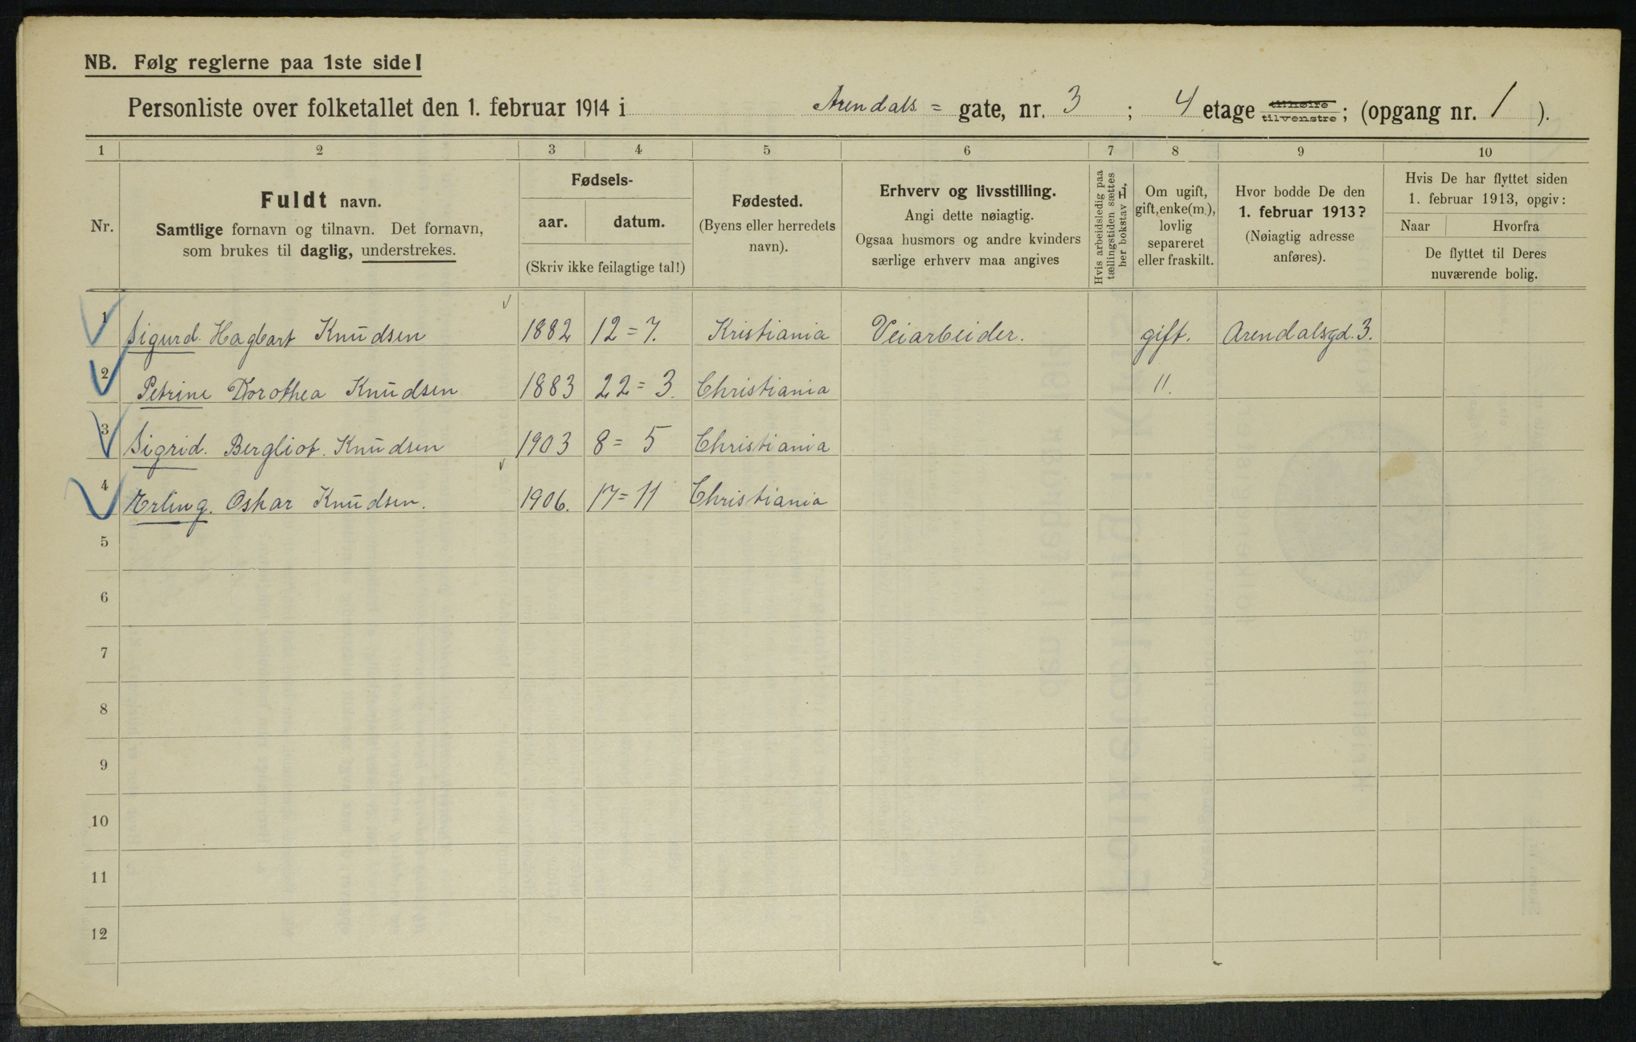 NB. Følg reglerne paa 1ste side!
Personliste over folketallet den 1. februar 1914 i Arendals = gate, nr. 3 ; 4 etage tilhøire tilvenstre ; (opgang nr. 1 ).
1 2 3 4 5 6 7 8 9 10
Nr.
Fuldt navn.
Samtlige fornavn og tilnavn. Det fornavn,
som brukes til daglig, understrekes.
Fødsels-
aar. datum.
(Skriv ikke feilagtige tal!)
Fødested.
(Byens eller herredets
navn).
Erhverv og livsstilling.
Angi dette nøiagtig.
Ogsaa husmors og andre kvinders
særlige erhverv maa angives
Hvis arbeidsledig paa
tællingstiden sættes
her bokstav L.
Om ugift,
gift, enke(m.),
lovlig
separeret
eller fraskilt.
Hvor bodde De den
1. februar 1913?
(Nøiagtig adresse
anføres).
Hvis De har flyttet siden
1. februar 1913, opgiv:
Naar Hvorfra
De flyttet til Deres
nuværende bolig.
1 Sigurd. Hagbart Knudsen 1882 12=7. Kristiania Veiarbeider. gift. Arendalsgd. 3.
2 Petrine Dorothea Knudsen 1883 22=3. Christiania ".
3 Sigrid. Bergliot. Knudsen 1903 8=5 Christiania
4 Erling. Oskar Knudsen. 1906. 17=11 Christiania
5
6
7
8
9
10
11
12